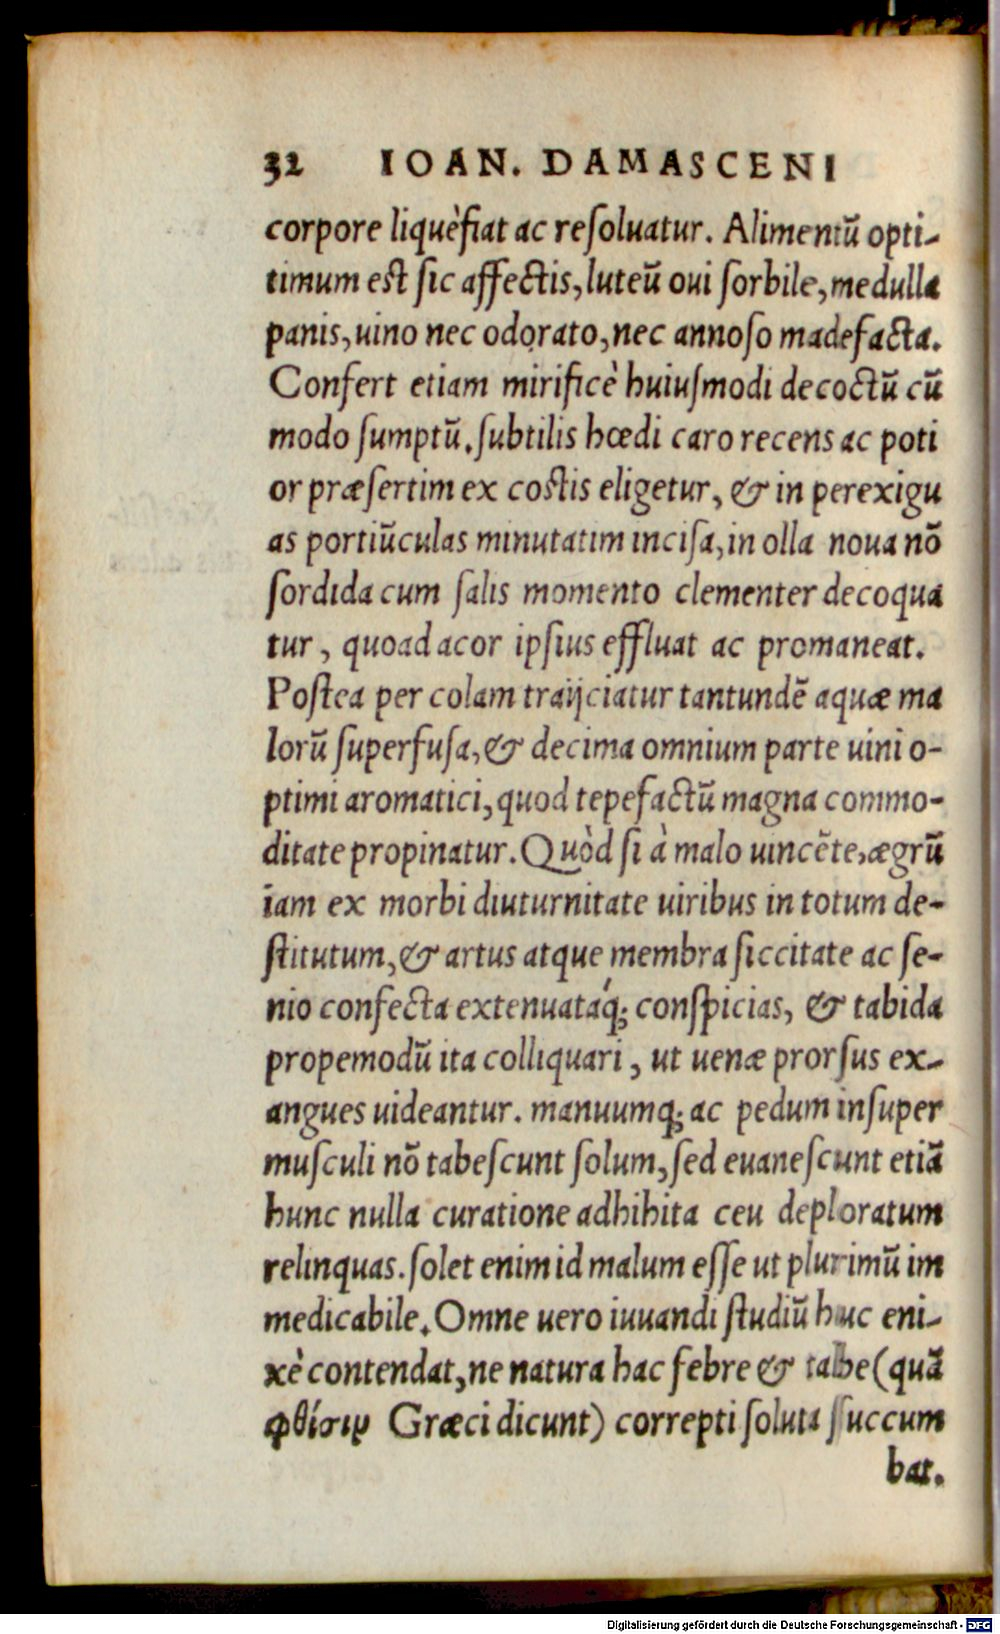 32 IOAN. DAMASCENI
corpore liquèfiat ac reſoluatur. Alimentũ opti-
timum est ſic affectis, luteũ oui ſorbile, medulla
panis, uino nec odorato, nec annoſo madefacta.
Confert etiam mirificè huiuſmodi decoctũ cũ
modo ſumptũ. ſubtilis hœdi caro recens ac poti
or præſertim ex costis eligetur, & in perexigu
as portiũculas minutatim inciſa, in olla noua nõ
ſordida cum ſalis momento clementer decoqua
tur, quoad acor ipſius effluat ac promaneat.
Postea per colam traijciatur tantundẽ aquæ ma
lorũ ſuperfuſa, & decima omnium parte uini o-
ptimi aromatici, quod tepefactũ magna commo-
ditate propinatur. Quòd ſi à malo uincẽte, ægrũ
iam ex morbi diuturnitate uiribus in totum de-
stitutum, & artus atque membra ſiccitate ac ſe-
nio confecta extenuatáq; conſpicias, & tabida
propemodũ ita colliquari, ut uenæ prorſus ex-
angues uideantur. manuumq; ac pedum inſuper
muſculi nõ tabeſcunt ſolum, ſed euaneſcunt etiã
hunc nulla curatione adhibita ceu deploratum
relinquas. ſolet enim id malum eſſe ut plurimũ im
medicabile. Omne uero iuuandi studiũ huc eni-
xè contendat, ne natura hac febre & tabe (quã
φθίσιν Græci dicunt) correpti ſoluta ſuccum
bat.
Digitalisierung gefördert durch die Deutsche Forschungsgemeinschaft - DFG